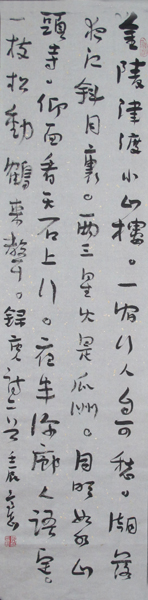 金陵津渡小山樓。一宿行人自可愁。潮落
夜江斜月裏。兩三星火是瓜洲。月明如水山
頭寺。仰面看天石上行。夜半深廊人語定。
一枝松動鶴來聲。錄唐詩二首壬辰